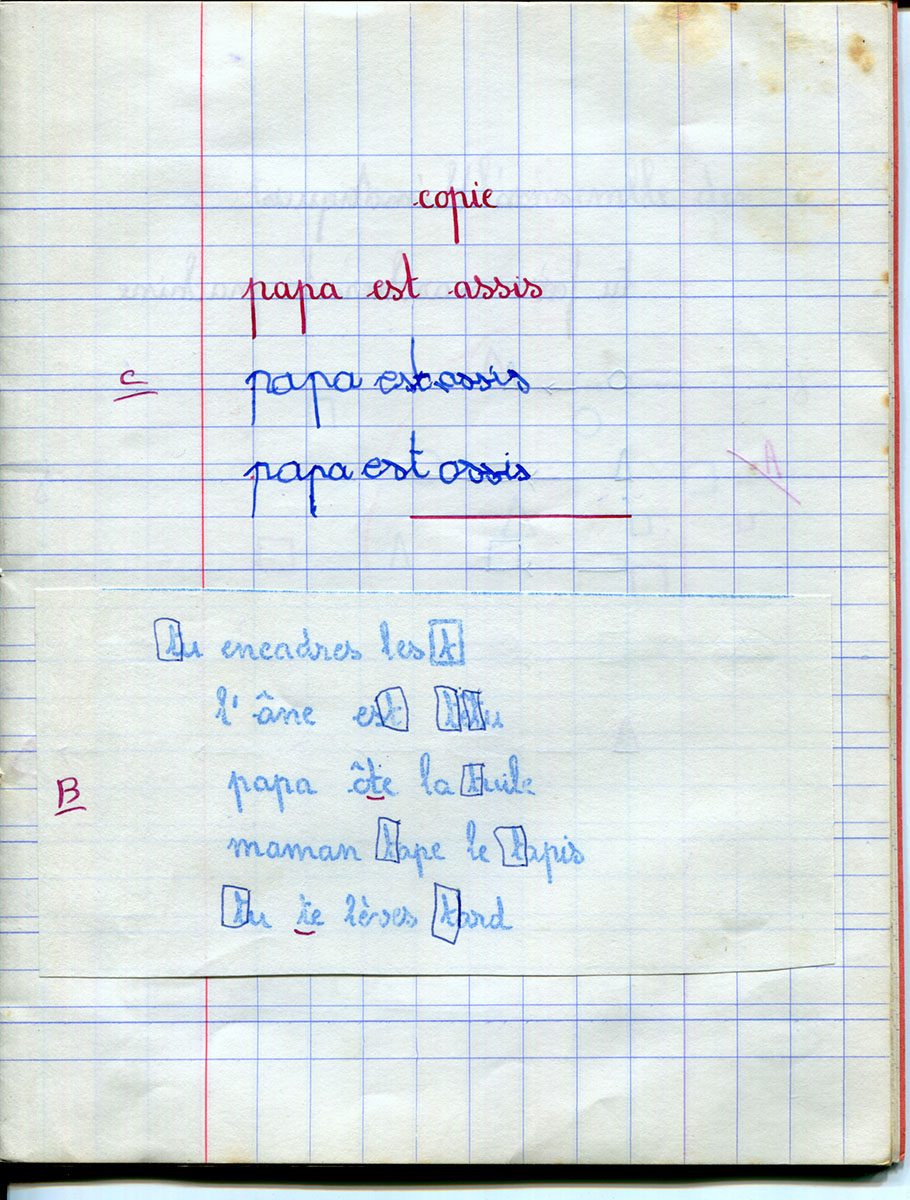 copie
papa est assis
C papa est assis
papa est assis
Tu encadres les t
l'âne est têtu
B papa ôte la tuile
maman tape le tapis
Tu te lèves tard